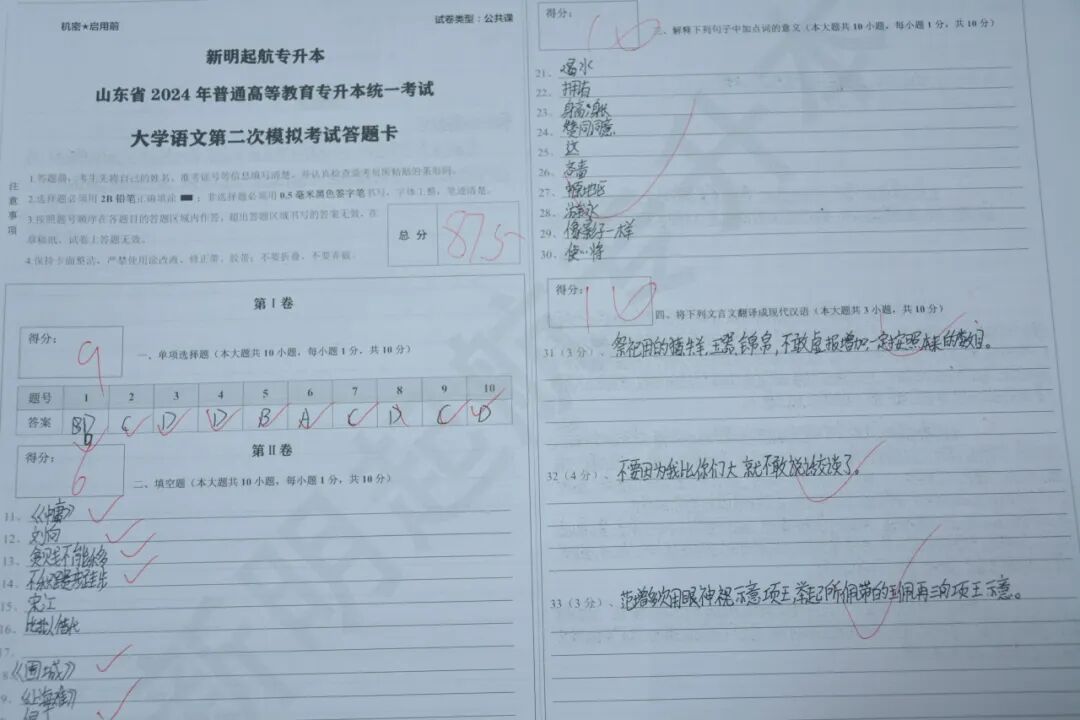 机密★启用前
试卷类型：公共课
新明起航专升本
山东省 2024 年普通高等教育专升本统一考试
大学语文第二次模拟考试答题卡
注意事项
1.答题前，考生先将自己的姓名、准考证号等信息填写清楚，并认真检查监考员所粘贴的条形码。
2.选择题必须用 2B 铅笔正确填涂 ；非选择题必须用 0.5 毫米黑色签字笔书写，字体工整，笔迹清楚。
3.按照题号顺序在各题目的答题区域内作答，超出答题区域书写的答案无效，在
草稿纸、试卷上答题无效。
4.保持卡面整洁，严禁使用涂改液、修正带、胶带；不要折叠、不要弄破。
总 分
87.5
第Ⅰ卷
得分：
9
一、单项选择题（本大题共 10 小题，每小题 1 分，共 10 分）
题号 1 2 3 4 5 6 7 8 9 10
答案 B D C D D B A C D C D
第Ⅱ卷
得分：
6
二、填空题（本大题共 10 小题，每小题 1 分，共 10 分）
11、《中庸》
12、刘向
13、
14、
15、宋江
16、比拟 借代
17、
8、《围城》
9、《上海屋》
得分：
10
三、解释下列句子中加点词的意义（本大题共 10 小题，每小题 1 分，共 10 分）
21、喝水
22、拥有
23、身高
24、赞同同意
25、达
26、吝啬
27、
28、
29、像影子一样
30、使…将
得分：
10
四、将下列文言文翻译成现代汉语（本大题共 3 小题，共 10 分）
31（3 分）、祭祀用的猪牛羊，玉器，锦帛，不敢虚报增加，一定按照本来的数目。
32（4 分）、不要因为我比你们大 就不敢说话交谈了。
33（3 分）、范增多次用眼神视示意项王，举起了所佩带的玉佩再三向项王示意。